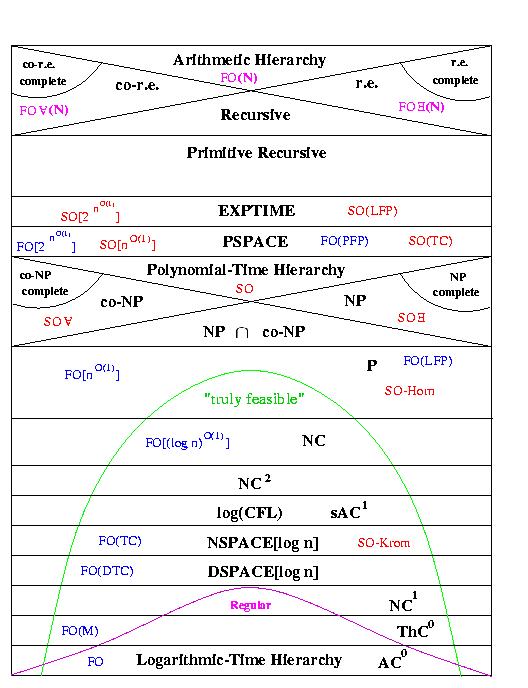 Arithmetic Hierarchy
co-r.e. complete
co-r.e.
FO(N)
r.e.
r.e. complete
FO∀(N)
FO∃(N)
Recursive
Primitive Recursive
SO[2^n^O(1)] EXPTIME SO(LFP)
FO[2^n^O(1)] SO[n^O(1)] PSPACE FO(PFP) SO(TC)
Polynomial-Time Hierarchy
co-NP complete
co-NP
SO
NP
NP complete
SO∀
SO∃
NP ∩ co-NP
P FO(LFP)
FO[n^O(1)]
SO-Horn
"truly feasible"
FO[(log n)^O(1)] NC
NC^2
log(CFL) sAC^1
FO(TC) NSPACE[log n] SO-Krom
FO(DTC) DSPACE[log n]
Regular NC^1
FO(M) ThC^0
FO Logarithmic-Time Hierarchy AC^0